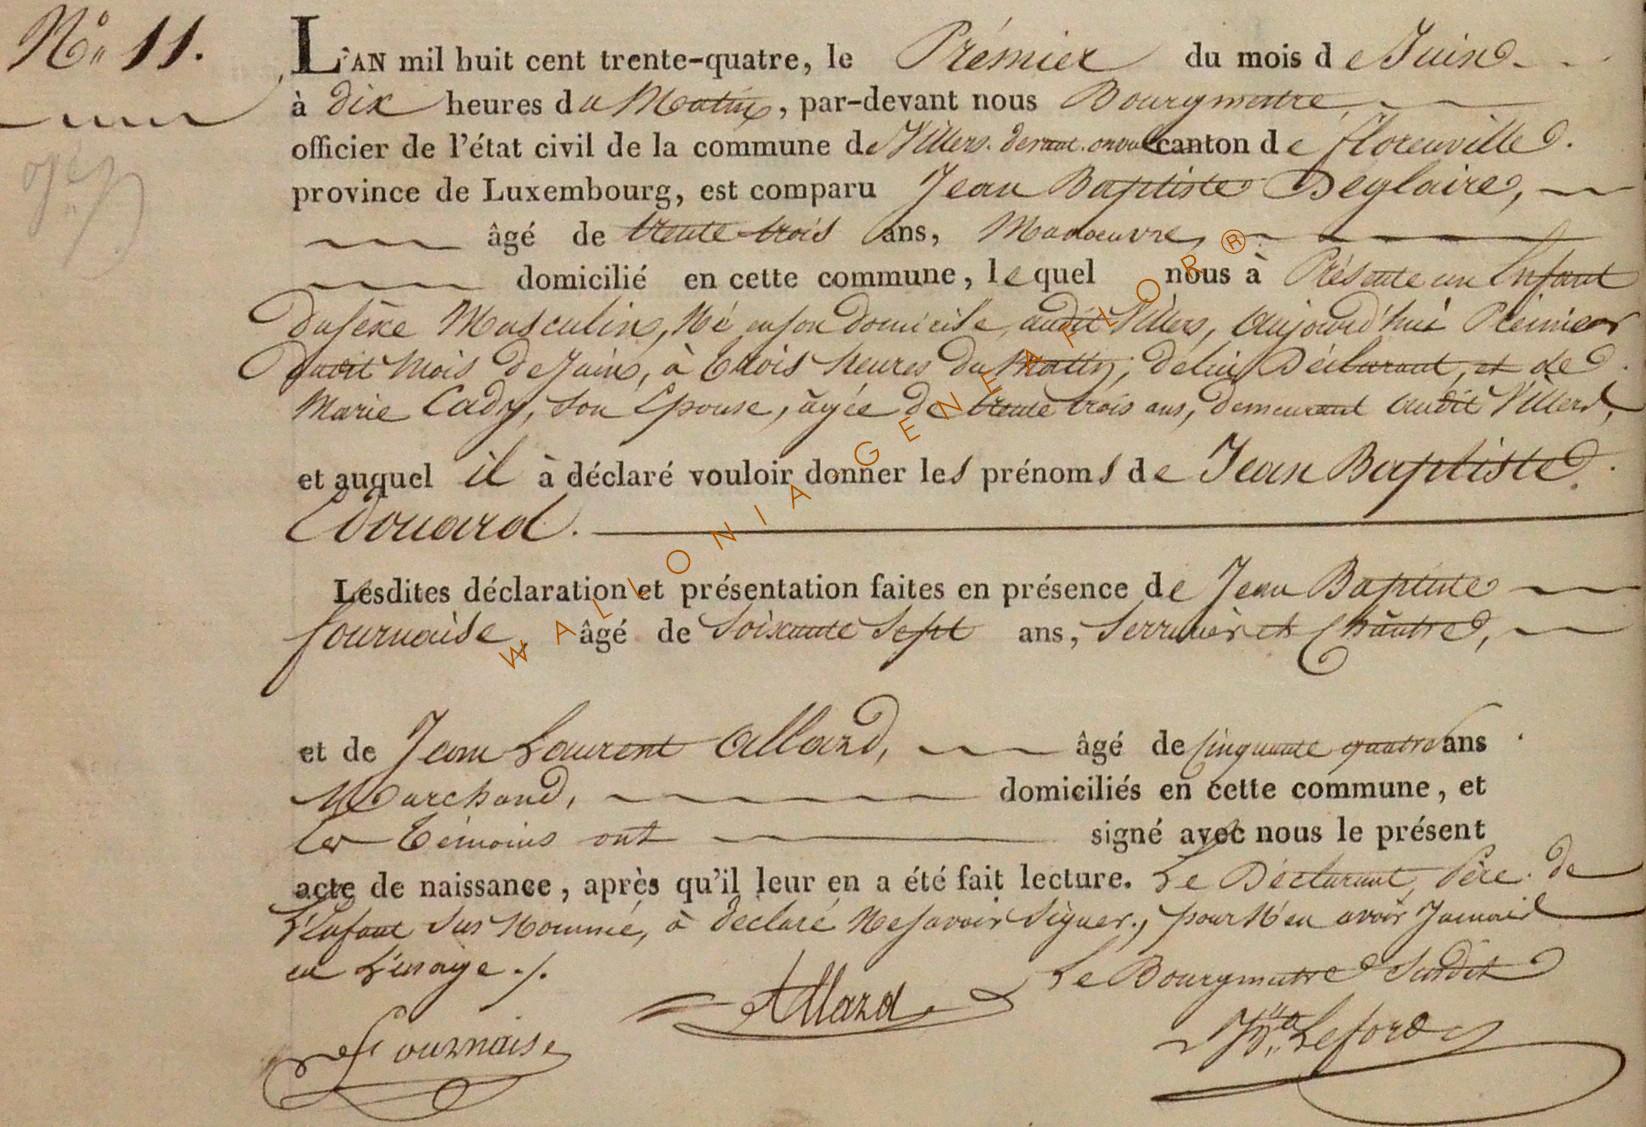 N° 11.
L'AN mil huit cent trente-quatre, le Prémier du mois de Juin
à dix heures du Matin, par-devant nous Bourgmestre
officier de l'état civil de la commune de Villers-devant-orval canton de florenville
province de Luxembourg, est comparu Jean Baptiste Deglaire,
âgé de trente-trois ans, Manoeuvre,
domicilié en cette commune, lequel nous à Présenté un Enfant
du sèxe Masculin, Né en son domicile, audit Villers, aujourd'hui Prémier
dudit Mois de Juin, à trois heures du Matin, de lui Déclarant, et de
Marie Cady, son Epouse, âgée de trente trois ans, demeurant audit Villers,
et auquel il à déclaré vouloir donner les prénoms de Jean Baptiste
Edouard.
Lesdites déclaration et présentation faites en présence de Jean Baptiste
fournaise, âgé de Soixante Sept ans, Serrurier et Chantre,
et de Jean Laurent Allard, âgé de Cinquante quatre ans
Marchand, domiciliés en cette commune, et
les témoins ont signé avec nous le présent
acte de naissance, après qu'il leur en a été fait lecture. Le Déclarant, Père de
L'Enfant Sus Nommé, à déclaré Ne savoir Signer, pour N'en avoir Jamais
eu L'usage ./.
Le Bourgmestre Susdit
Allard
Fournaise
Leford
WALLONIA GENEAFLOR®